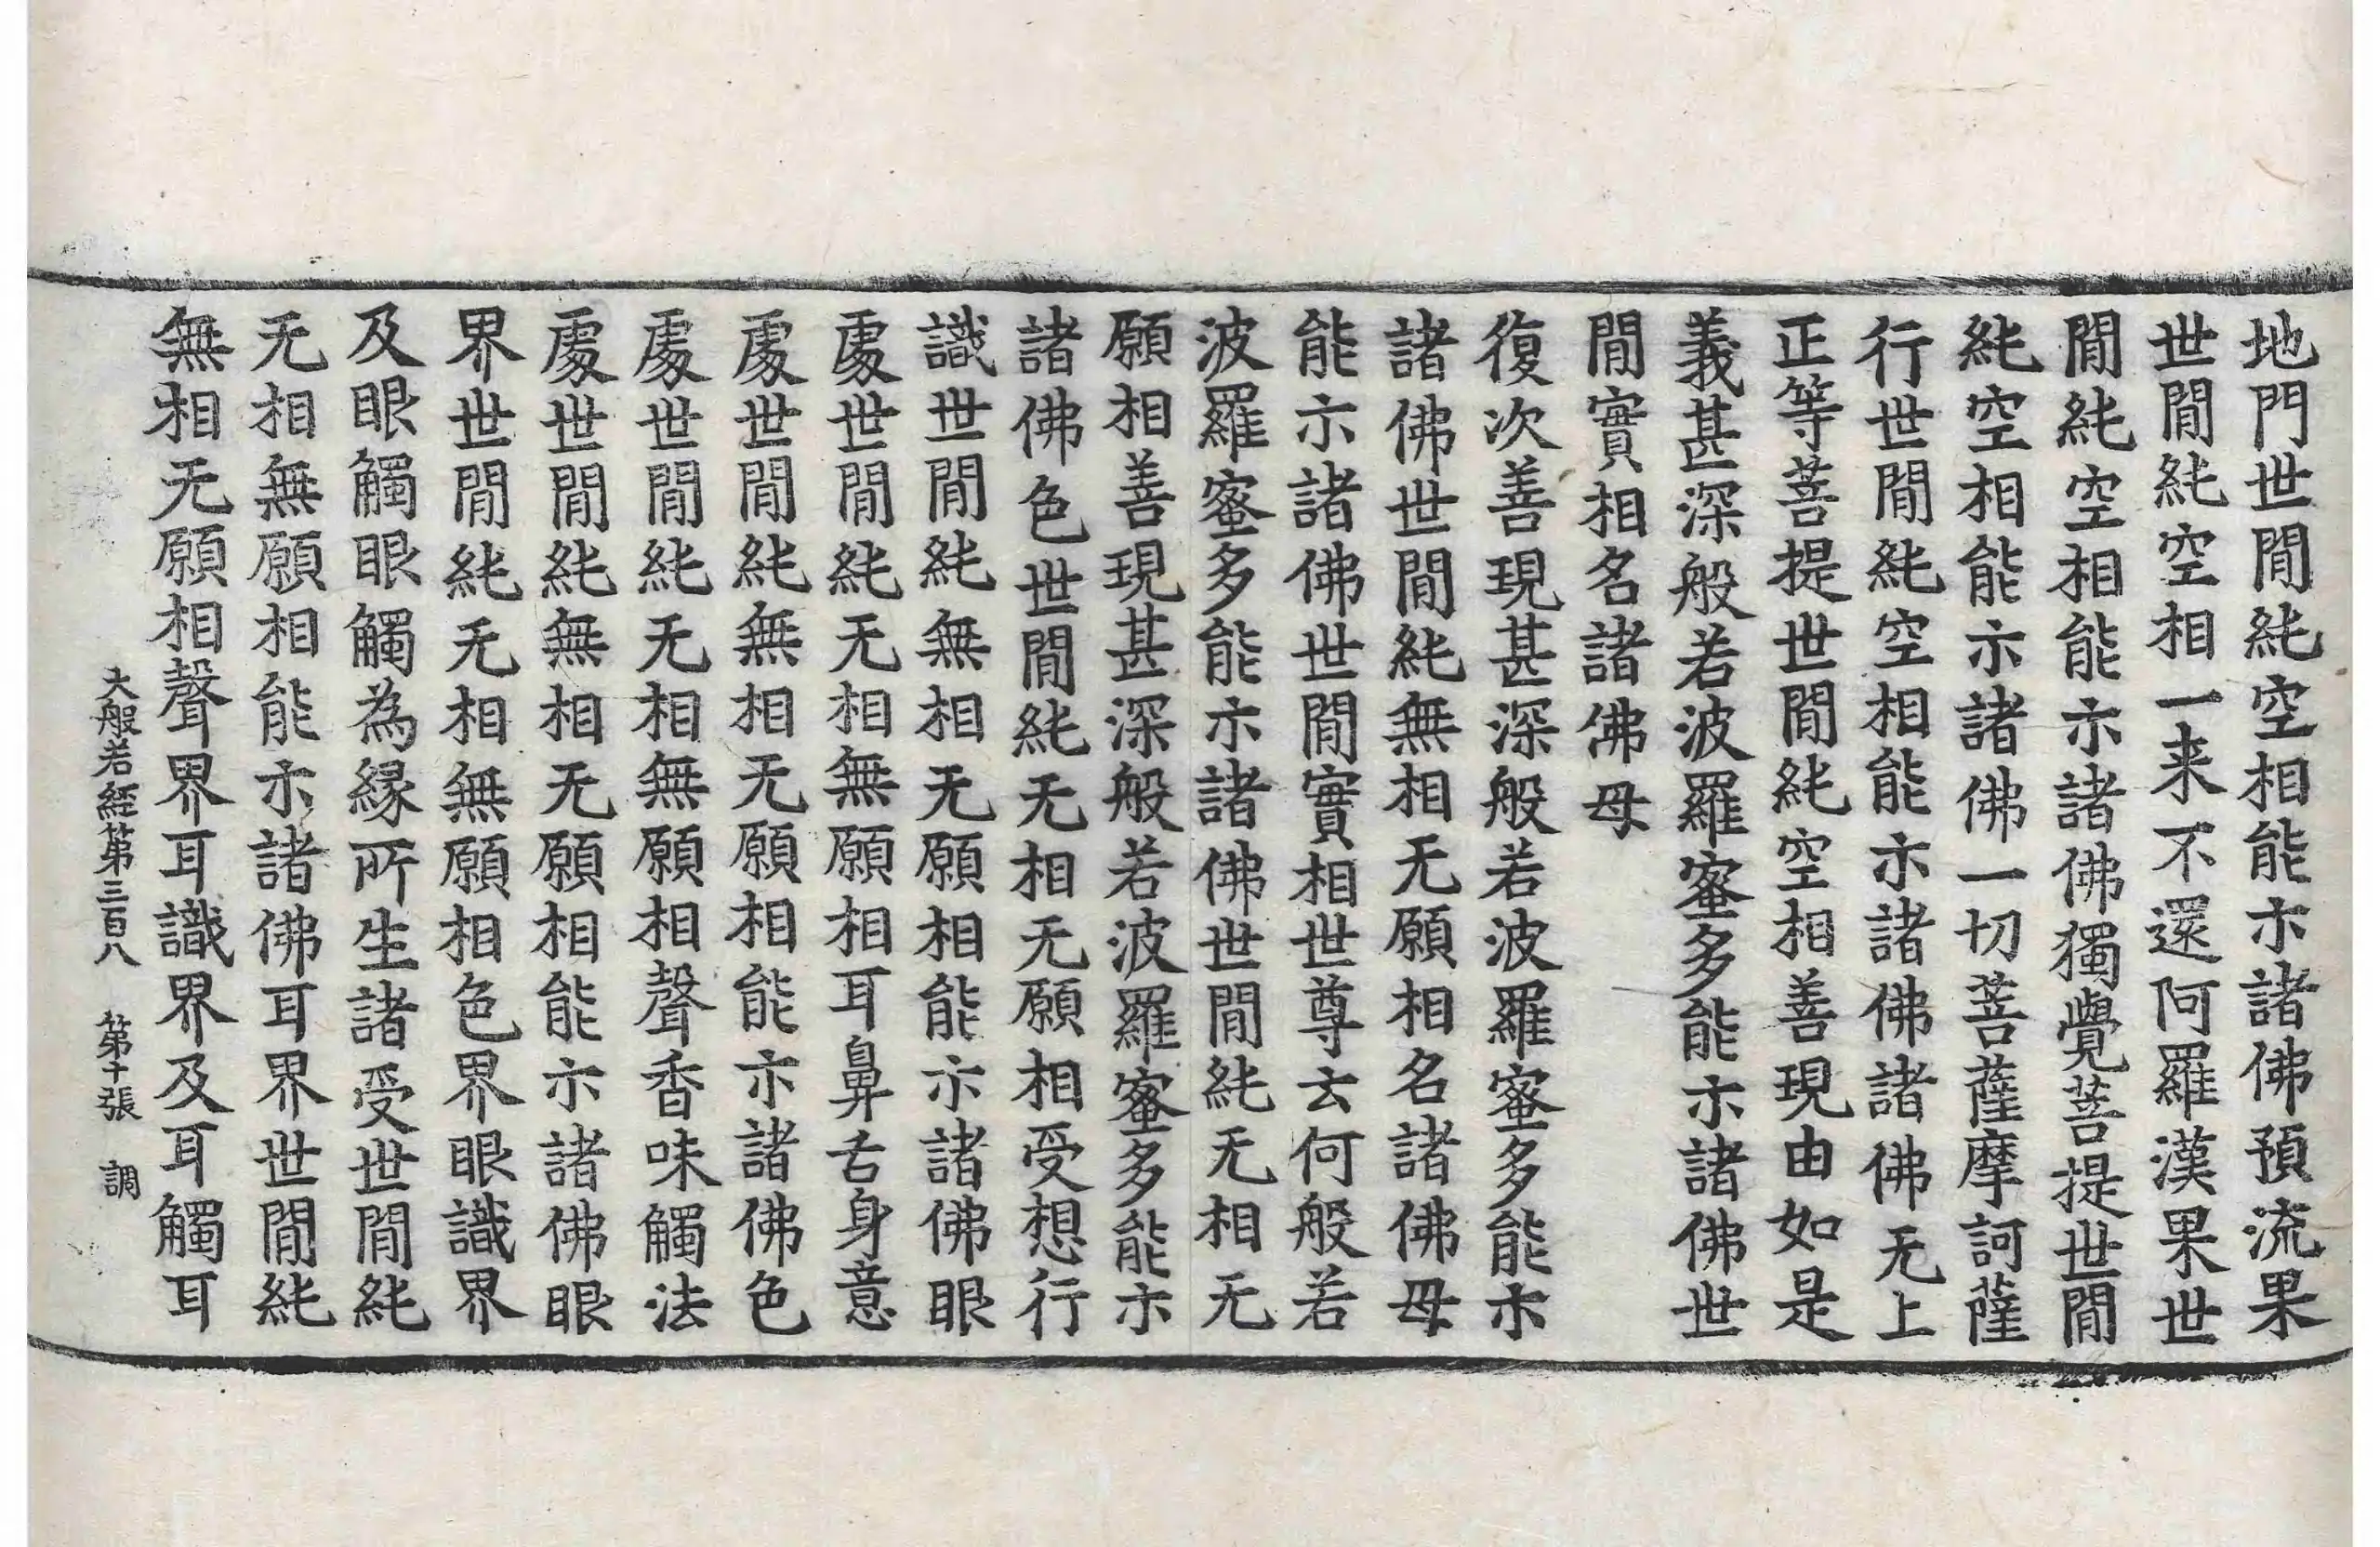 地門世閒純空相能示諸佛預流果
世閒純空相一来不還阿羅漢果世
閒純空相能示諸佛獨覺菩提世閒
純空相能示諸佛一切菩薩摩訶薩
行世閒純空相能示諸佛諸佛无上
正等菩提世閒純空相善現由如是
義甚深般若波羅蜜多能示諸佛世
閒實相名諸佛母
復次善現甚深般若波羅蜜多能示
諸佛世閒純無相无願相名諸佛母
能示諸佛世閒實相世尊云何般若
波羅蜜多能示諸佛世閒純无相无
願相善現甚深般若波羅蜜多能示
諸佛色世閒純无相无願相受想行
識世閒純無相无願相能示諸佛眼
處世閒純无相無願相耳鼻舌身意
處世閒純無相无願相能示諸佛色
處世閒純无相無願相聲香味觸法
處世閒純無相无願相能示諸佛眼
界世閒純无相無願相色界眼識界
及眼觸眼觸為縁所生諸受世閒純
无相無願相能示諸佛耳界世閒純
無相无願相聲界耳識界及耳觸耳
大般若經第三百八　第十張　調